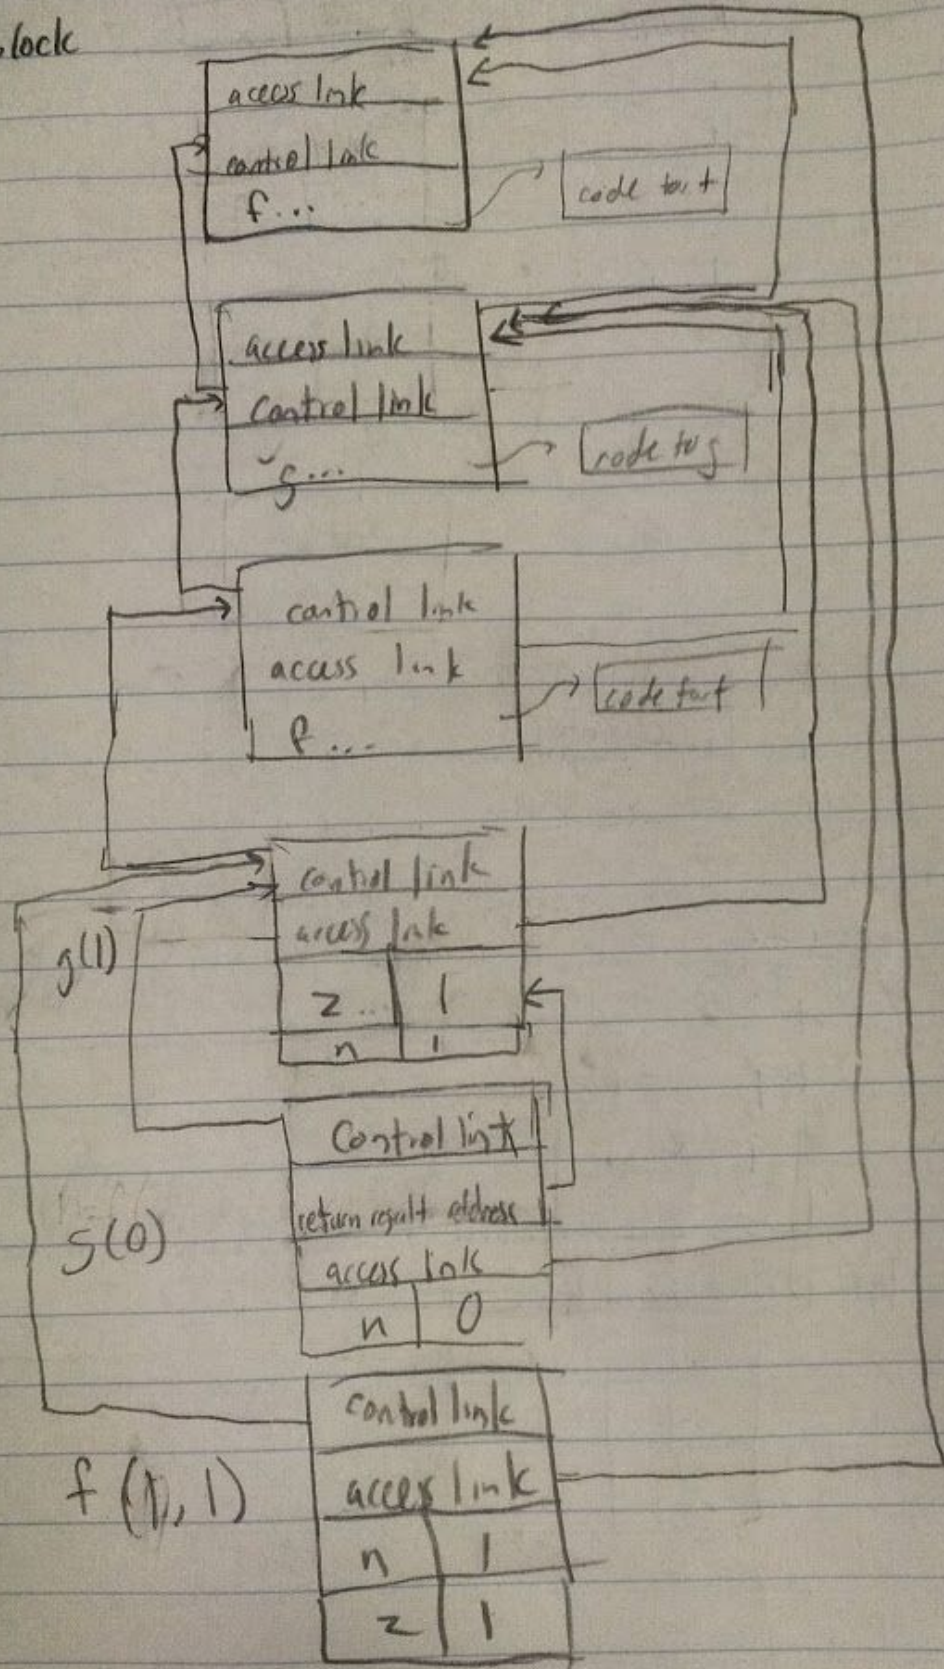 lock
access link
control link
f...
code for f
access link
control link
g...
code for g
control link
access link
f...
code for f
control link
access link
g(1)
z.. 1
n 1
control link
return result address
g(0)
access link
n 0
control link
f(1,1)
access link
n 1
z 1